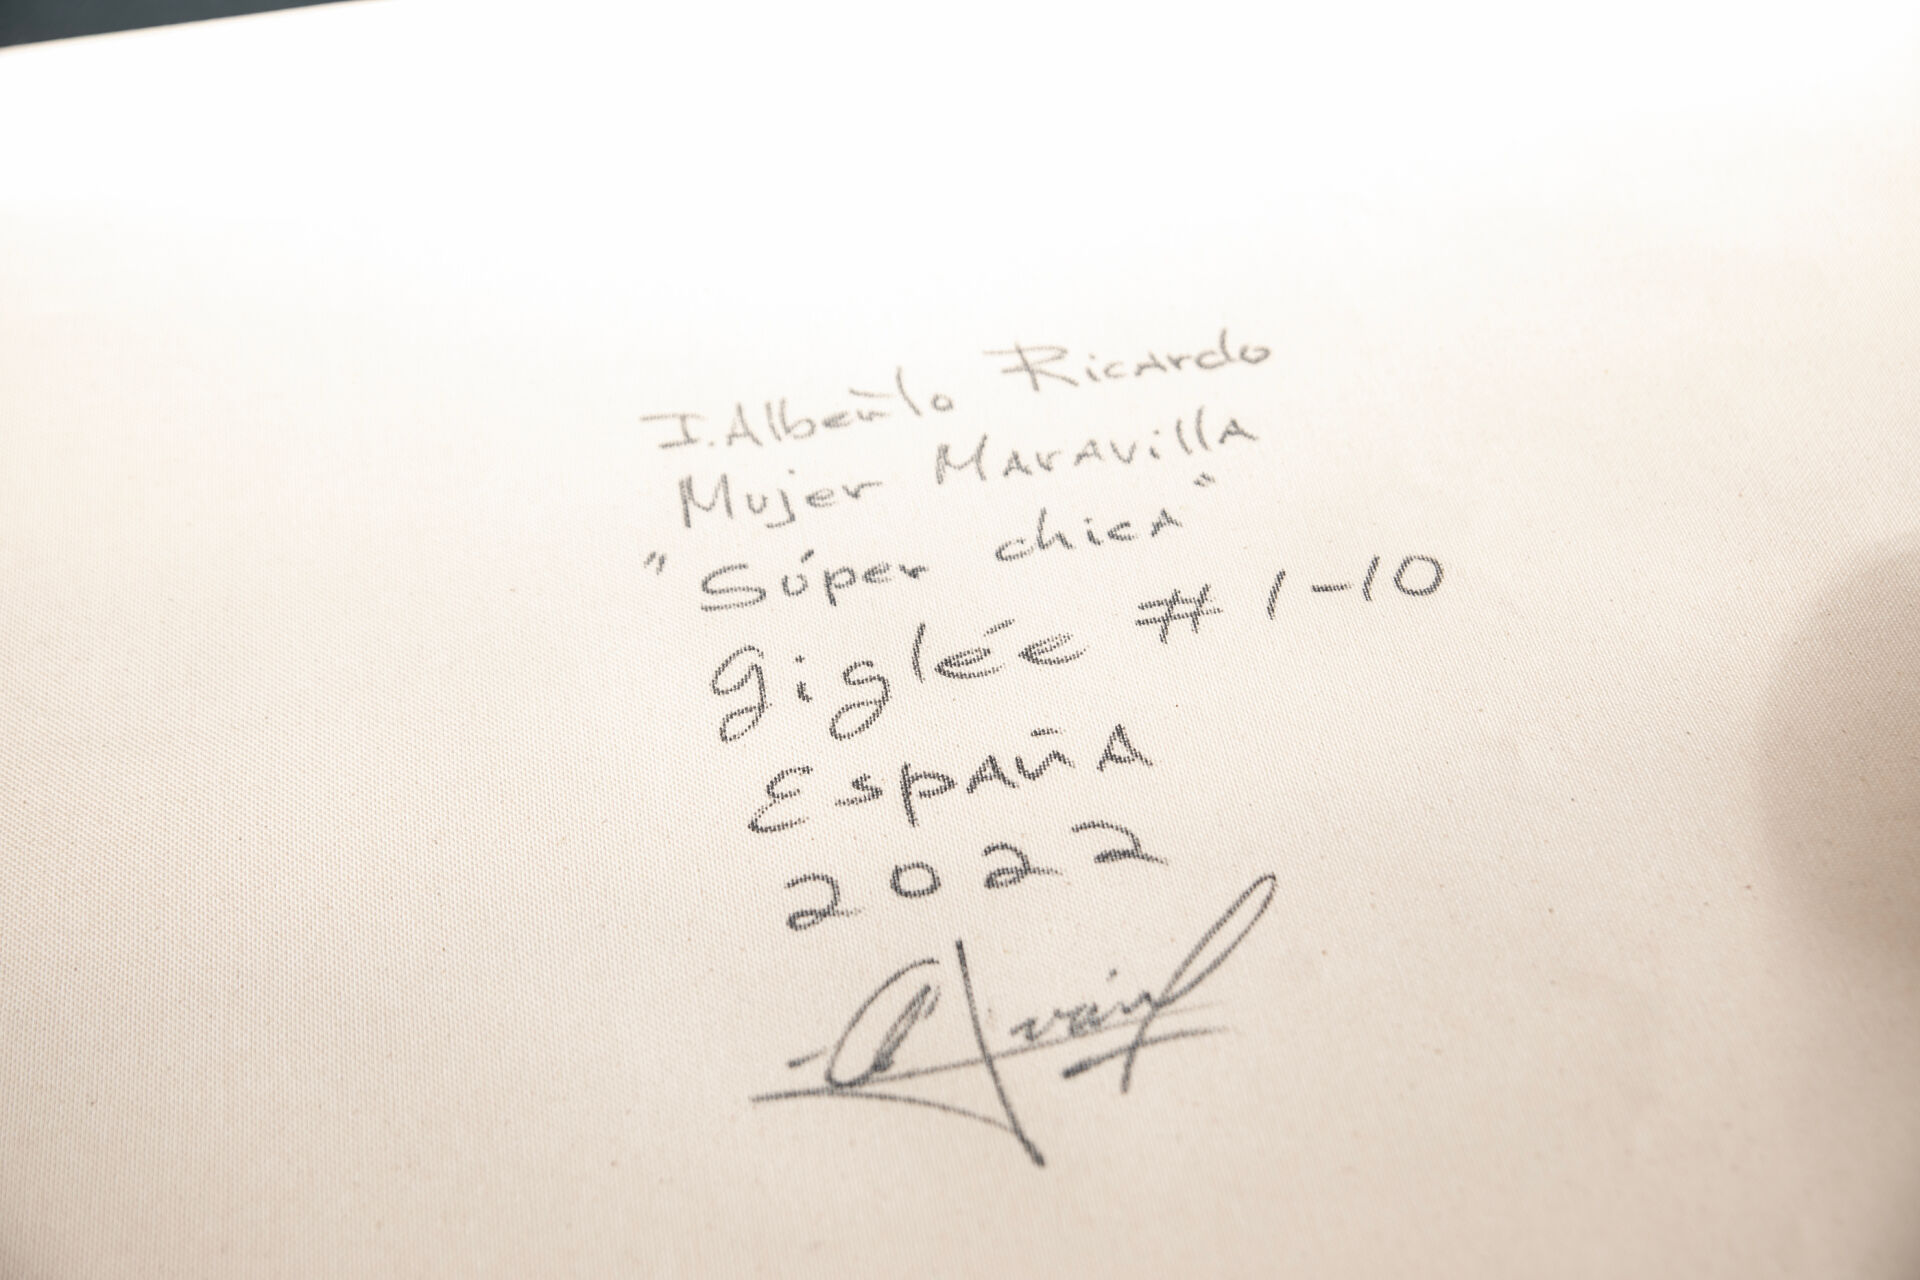 I. Alberto Ricardo
Mujer Maravilla
"Súper chica"
giglée # 1-10
España
2022